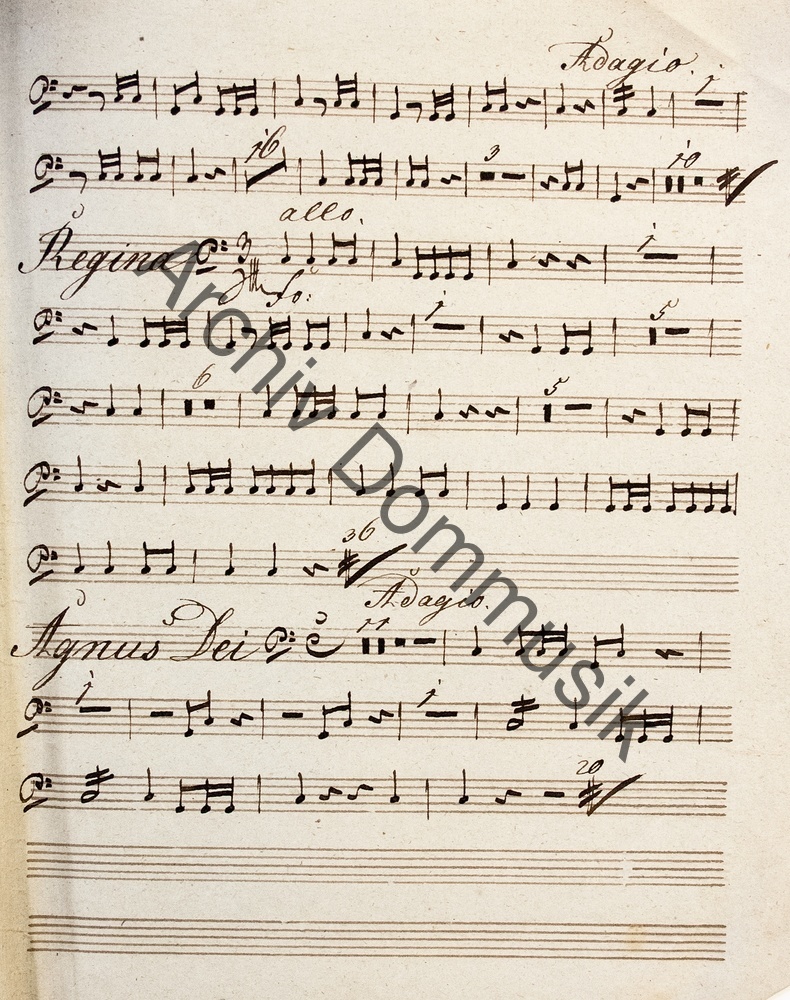 Adagio.
1
16
3
10
allo.
Regina
3
1
fo:
1
5
6
5
36
Adagio.
11
Agnus Dei
1
1
20
Archiv Dommusik